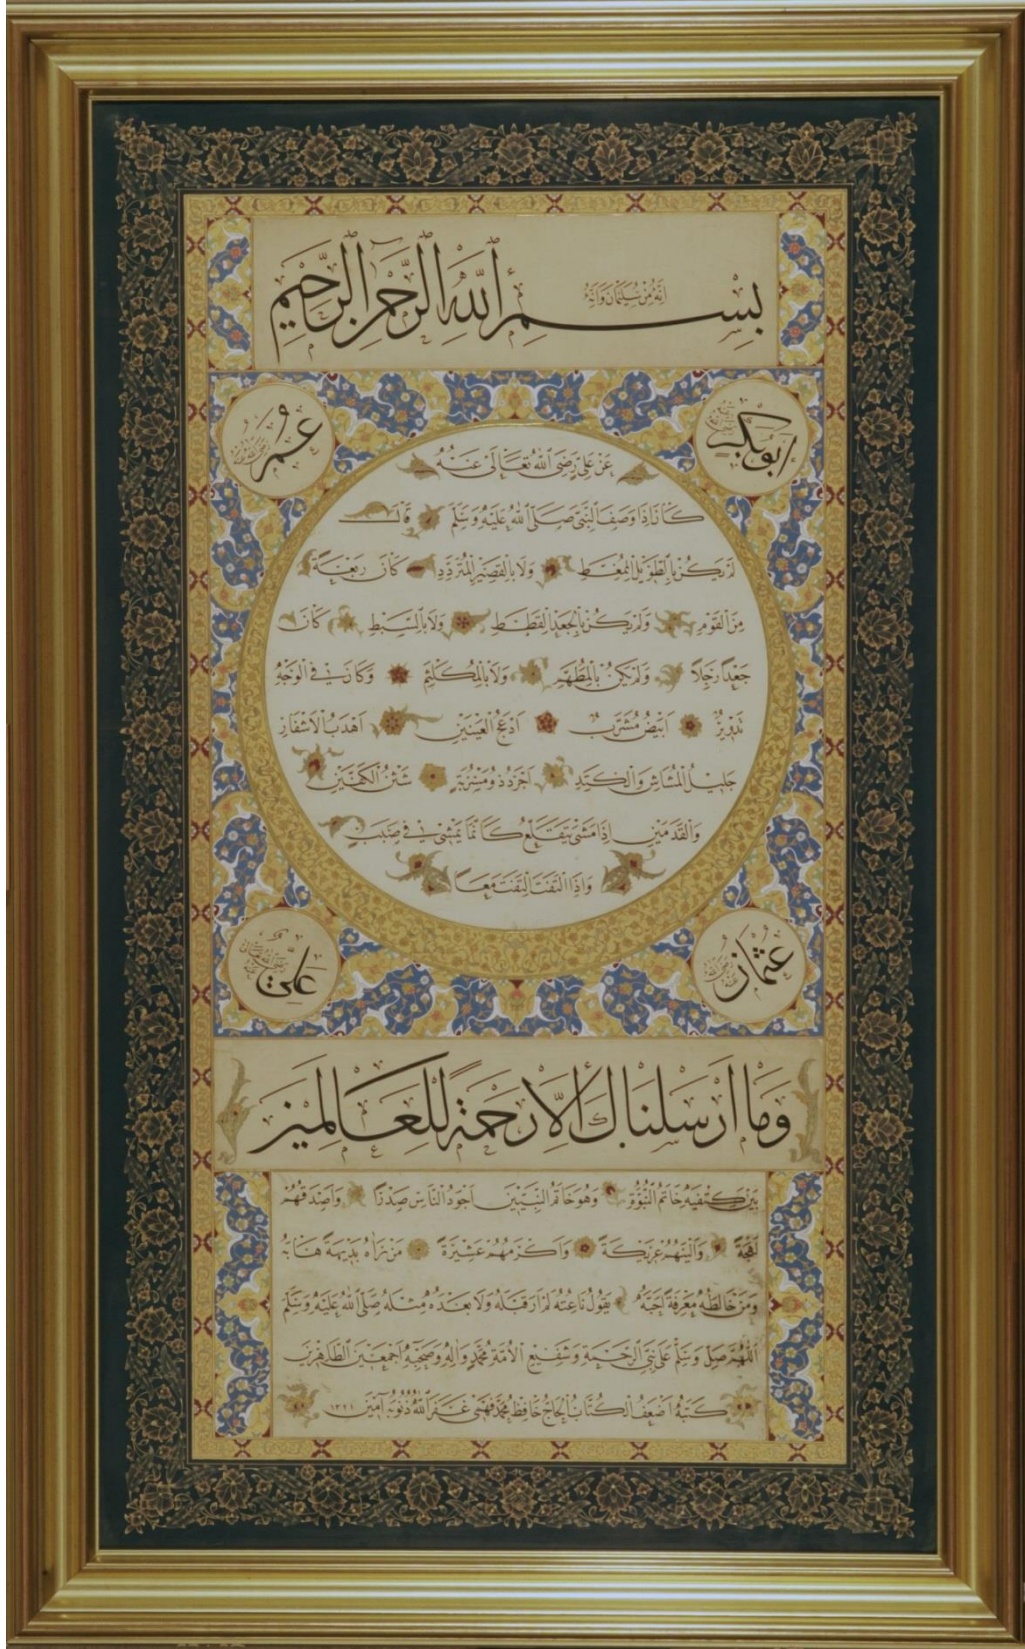 إنه من سليمان وإنه
بسم الله الرحمن الرحيم
أبو بكر رضي الله تعالى عنه
عمر رضي الله تعالى عنه
عن علي رضي الله تعالى عنه
كان إذا وصف النبي صلى الله عليه وسلم قال
لم يكن بالطويل الممغط ولا بالقصير المتردد كان ربعة
من القوم ولم يكن بالجعد القطط ولا بالسبط كان
جعدا رجلا ولم يكن بالمطهم ولا بالمكلثم وكان في الوجه
تدوير أبيض مشرب أدعج العينين أهدب الأشفار
جليل المشاش والكتد أجرد ذو مسربة شثن الكفين
والقدمين إذا مشى يتقلع كأنما يمشي في صبب
وإذا التفت التفت معا
عثمان رضي الله تعالى عنه
علي رضي الله تعالى عنه
وما أرسلناك إلا رحمة للعالمين
بين كتفيه خاتم النبوة وهو خاتم النبيين أجود الناس صدرا وأصدقهم
لهجة وألينهم عريكة وأكرمهم عشيرة من رآه بديهة هابه
ومن خالطه معرفة أحبه يقول ناعته لم أر قبله ولا بعده مثله صلى الله عليه وسلم
اللهم صل وسلم على نبي الرحمة وشفيع الأمة محمد وآله وصحبه أجمعين الطاهرين
كتبه أضعف الكتاب الحاج حافظ محمد فهمي غفر الله ذنوبه آمين